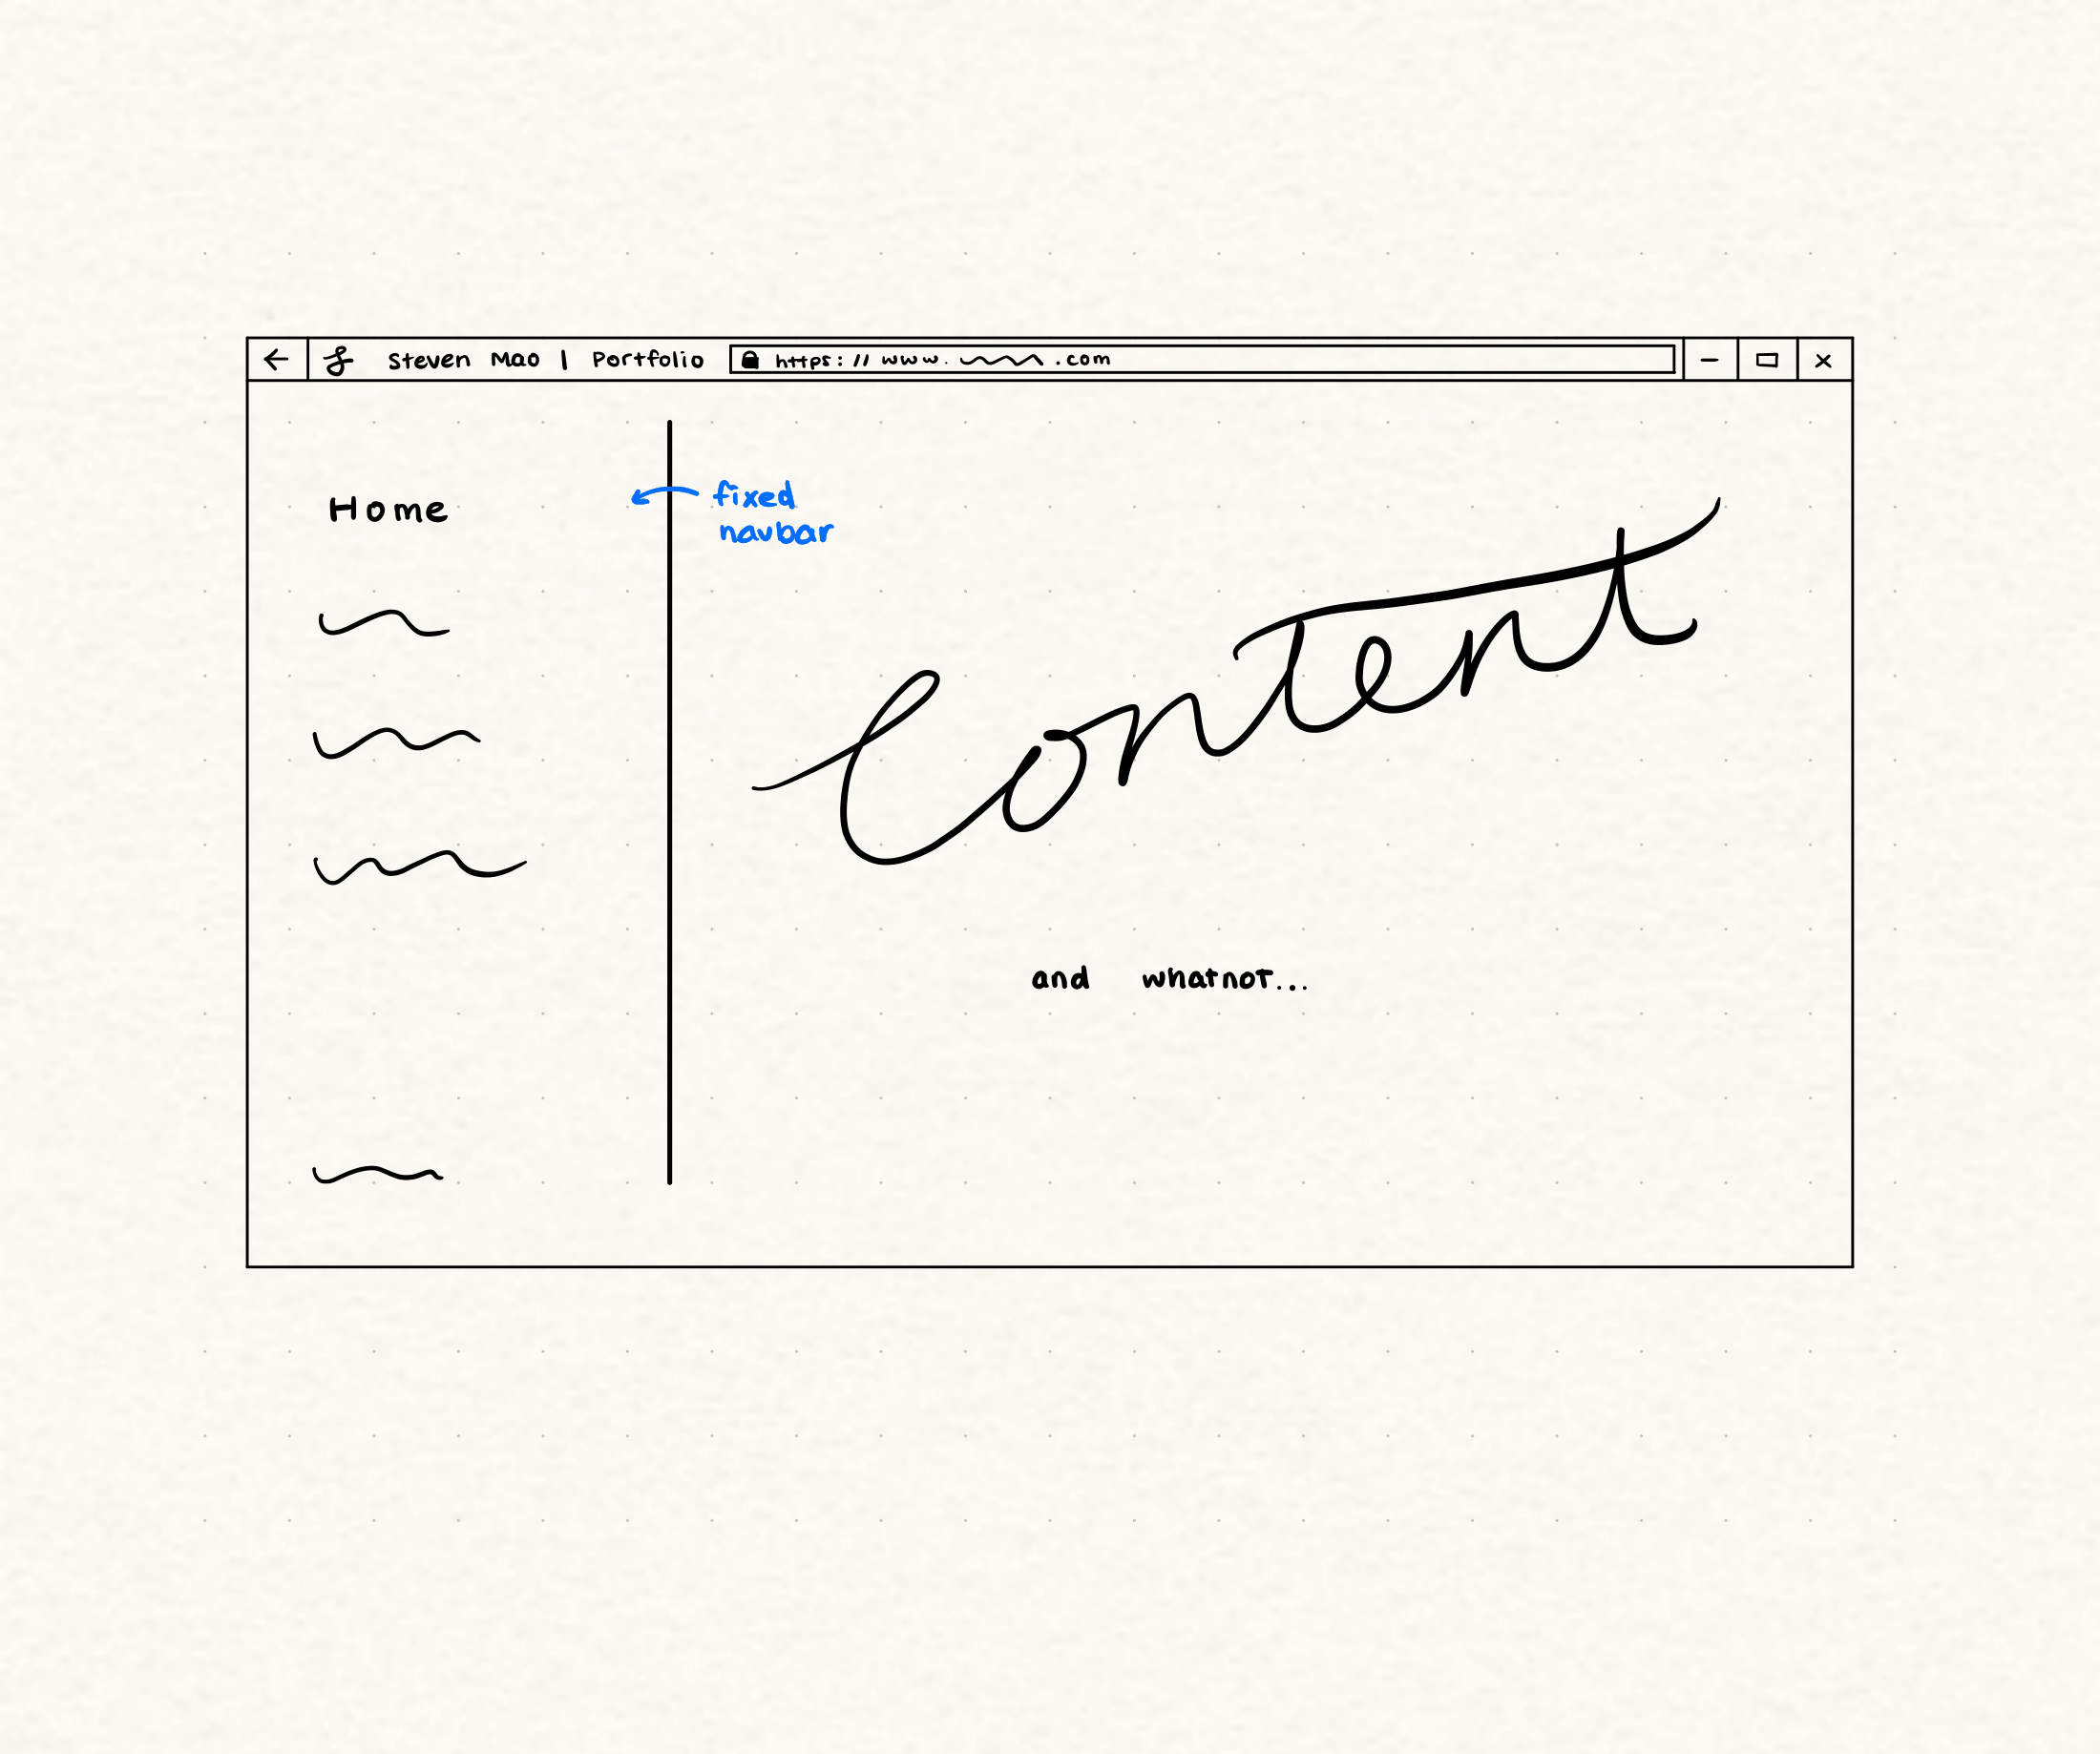 Steven Mao | Portfolio
https://www. .com
Home
fixed
navbar
Content
and whatnot...